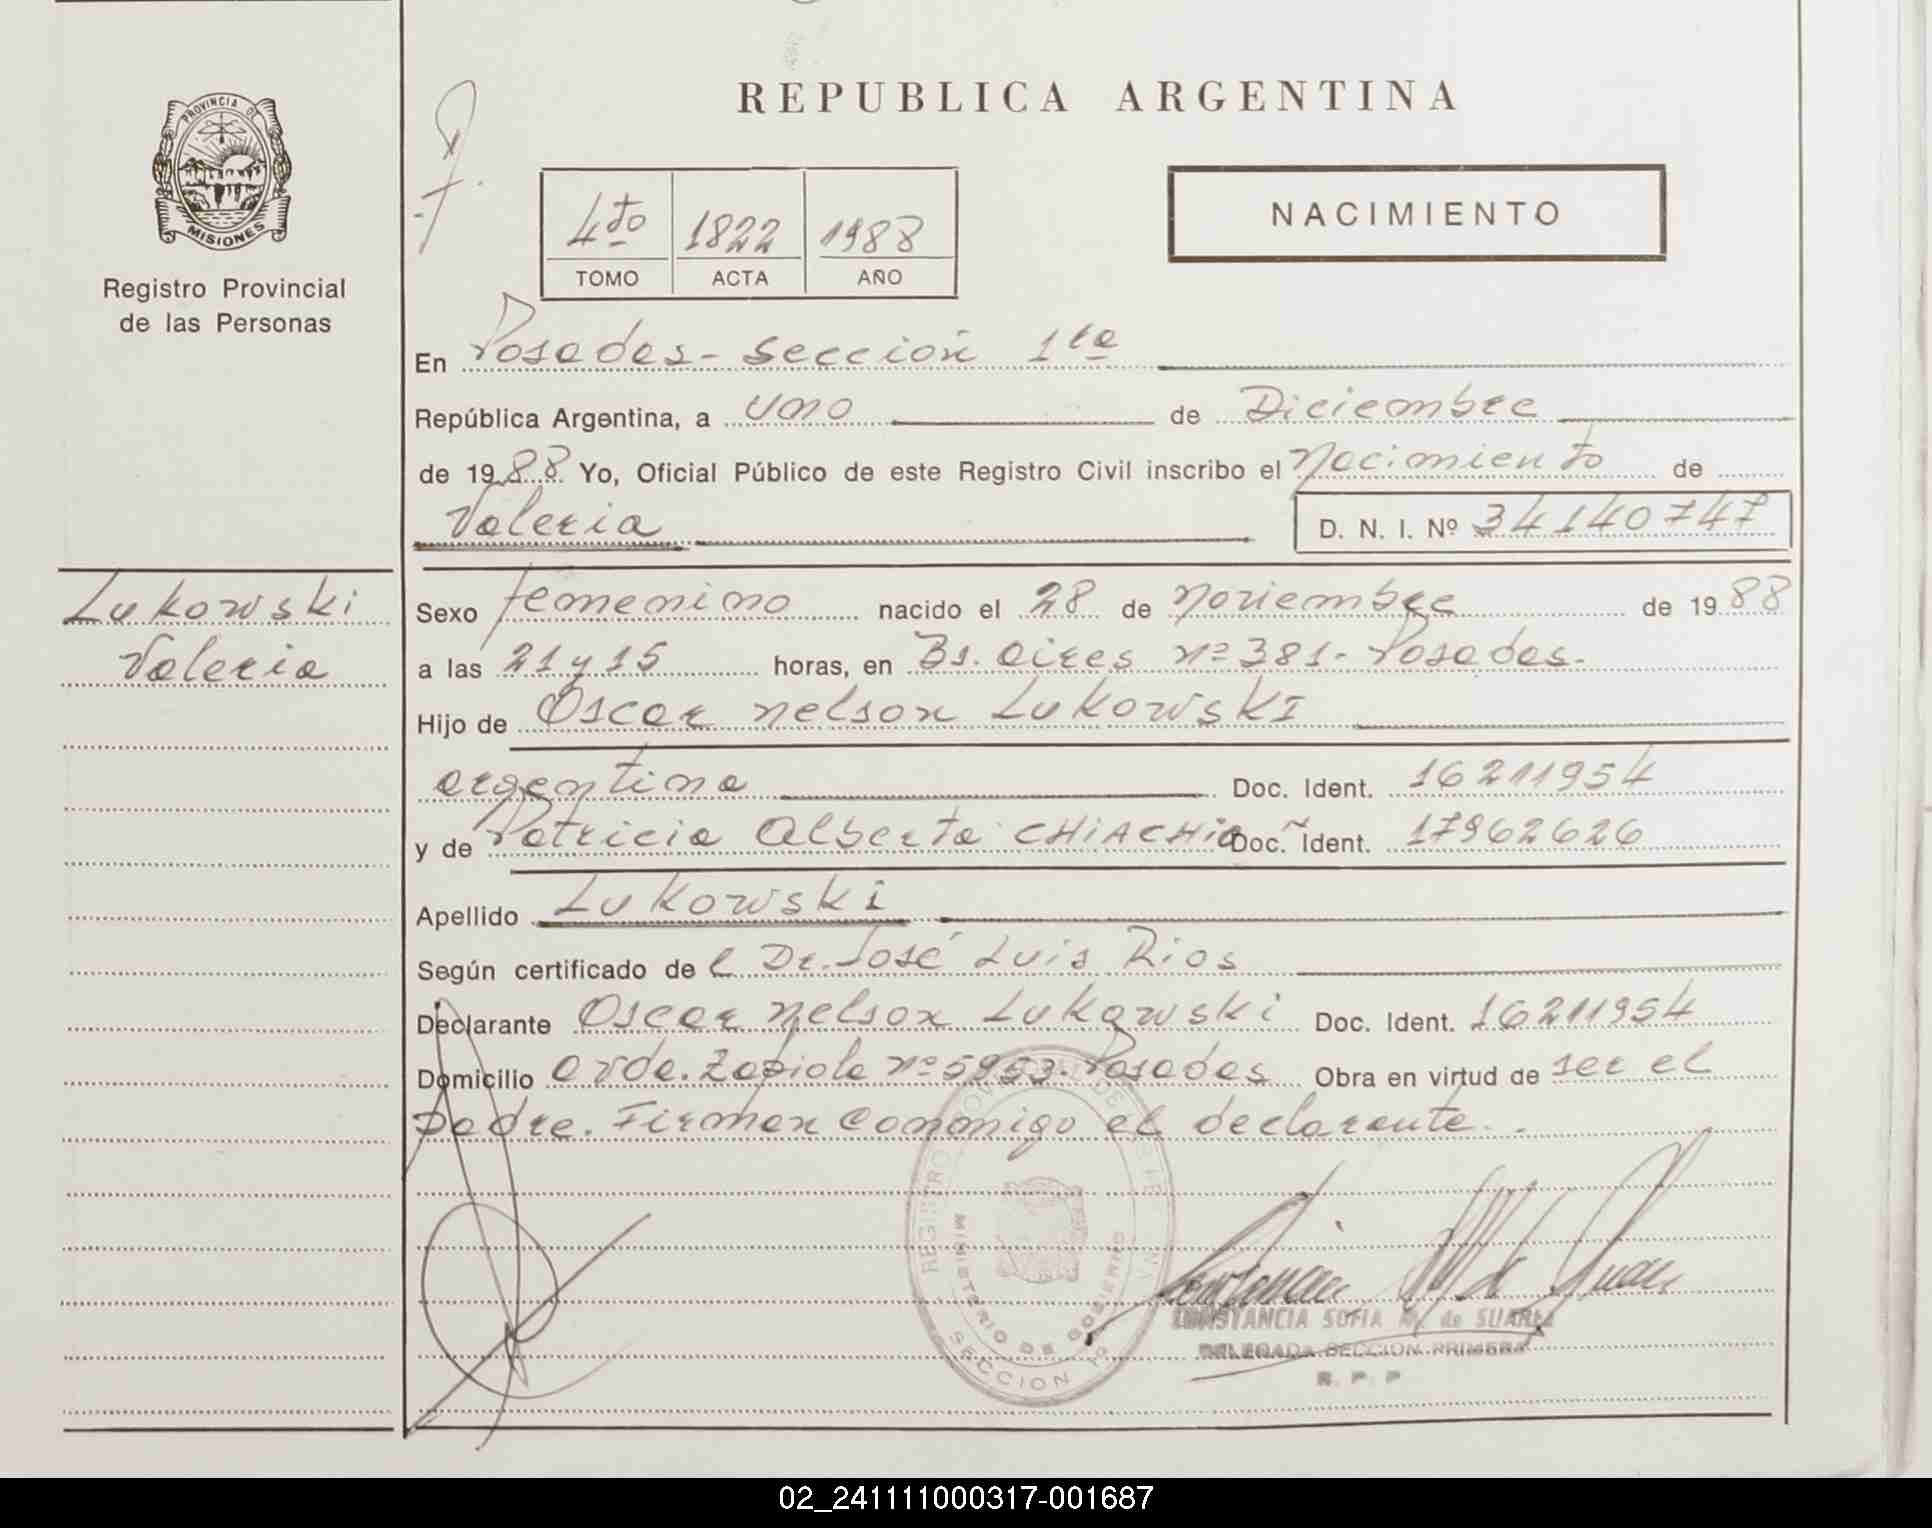 REPUBLICA ARGENTINA
PROVINCIA DE
MISIONES
Registro Provincial
de las Personas
4to 1822 1988
TOMO ACTA AÑO
NACIMIENTO
En Posadas - Sección 1ra
República Argentina, a uno de Diciembre
de 1988 Yo, Oficial Público de este Registro Civil inscribo el Nacimiento de
Valeria D. N. I. Nº 34140747
Lukowski
Valeria
Sexo femenino nacido el 28 de Noviembre de 1988
a las 21 y 15 horas, en Bs. Aires Nº 381 - Posadas.
Hijo de Oscar Nelson LukowskI
argentina Doc. Ident. 16211954
y de Patricia Alberta CHiACHio Doc. Ident. 17962626
Apellido Lukowski
Según certificado de l Dr. José Luis Rios
Declarante Oscar Nelson Lukowski Doc. Ident. 16211954
Domicilio Avda. Zapiola Nº 5953. Posadas Obra en virtud de ser el
Padre. Firman conmigo el declarante.
REGISTRO
MINISTERIO DE GOBIERNO
SECCION 1º
CONSTANCIA SOFIA M. de SUAREZ
DELEGADA SECCION PRIMERA
R. P. P
02_241111000317-001687